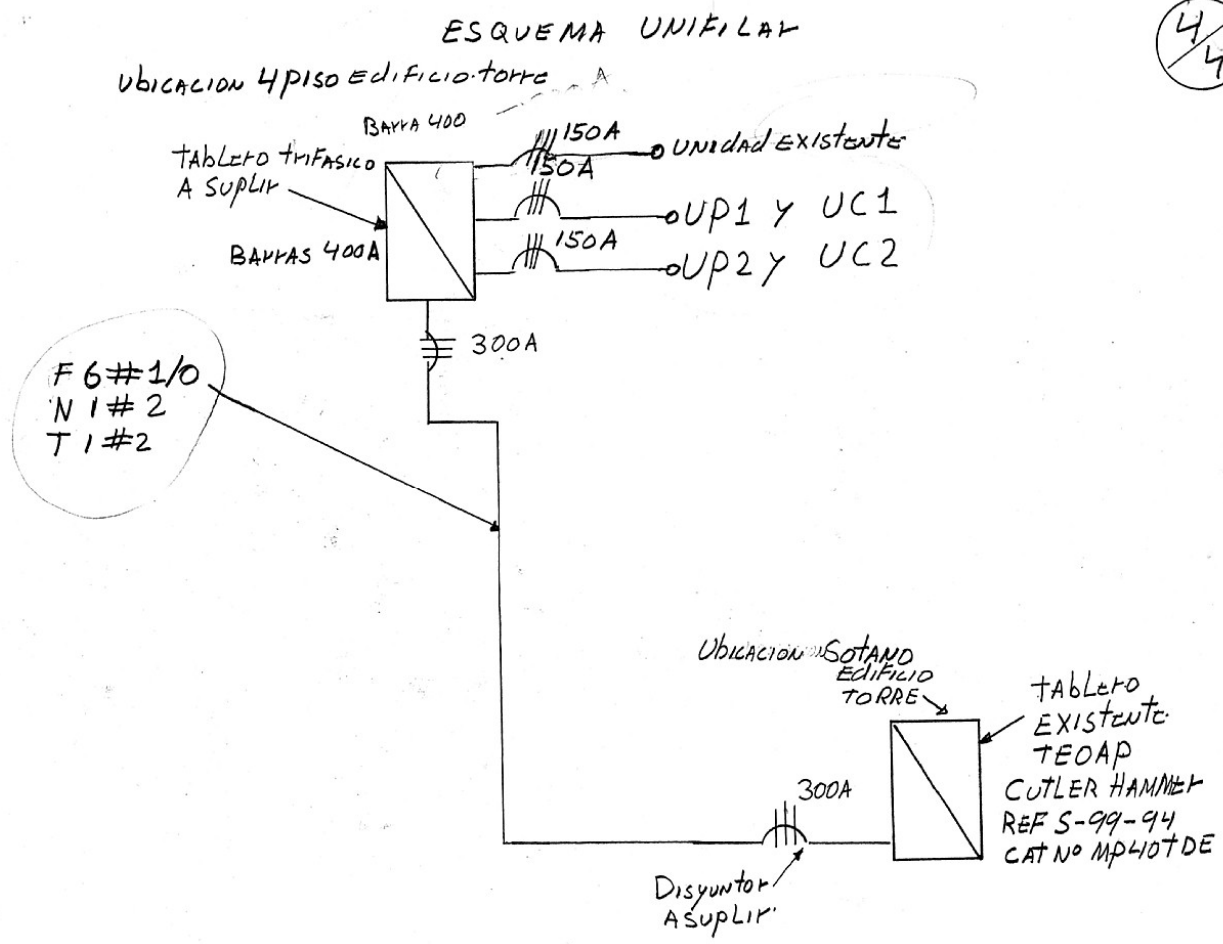 ESQUEMA UNIFILAr
4/4
UbICACION 4PISO EdIFICIO.torre A
BArrA 400
tAbLEro triFASICO
A SUPLIr
BArrAS 400A
150A
UNIdAd EXIStENtE
150A
UP1 Y UC1
150A
UP2 Y UC2
300A
F 6#1/0
N 1#2
T 1#2
UbICACION SOtANO
EdIFICIO
TORRE
tAbLEro
EXIStENtE
TEOAP
CUTLER HAMMEr
REF S-99-94
CAT Nº MPL40TDE
300A
DISyUNtor
A SUPLIr.